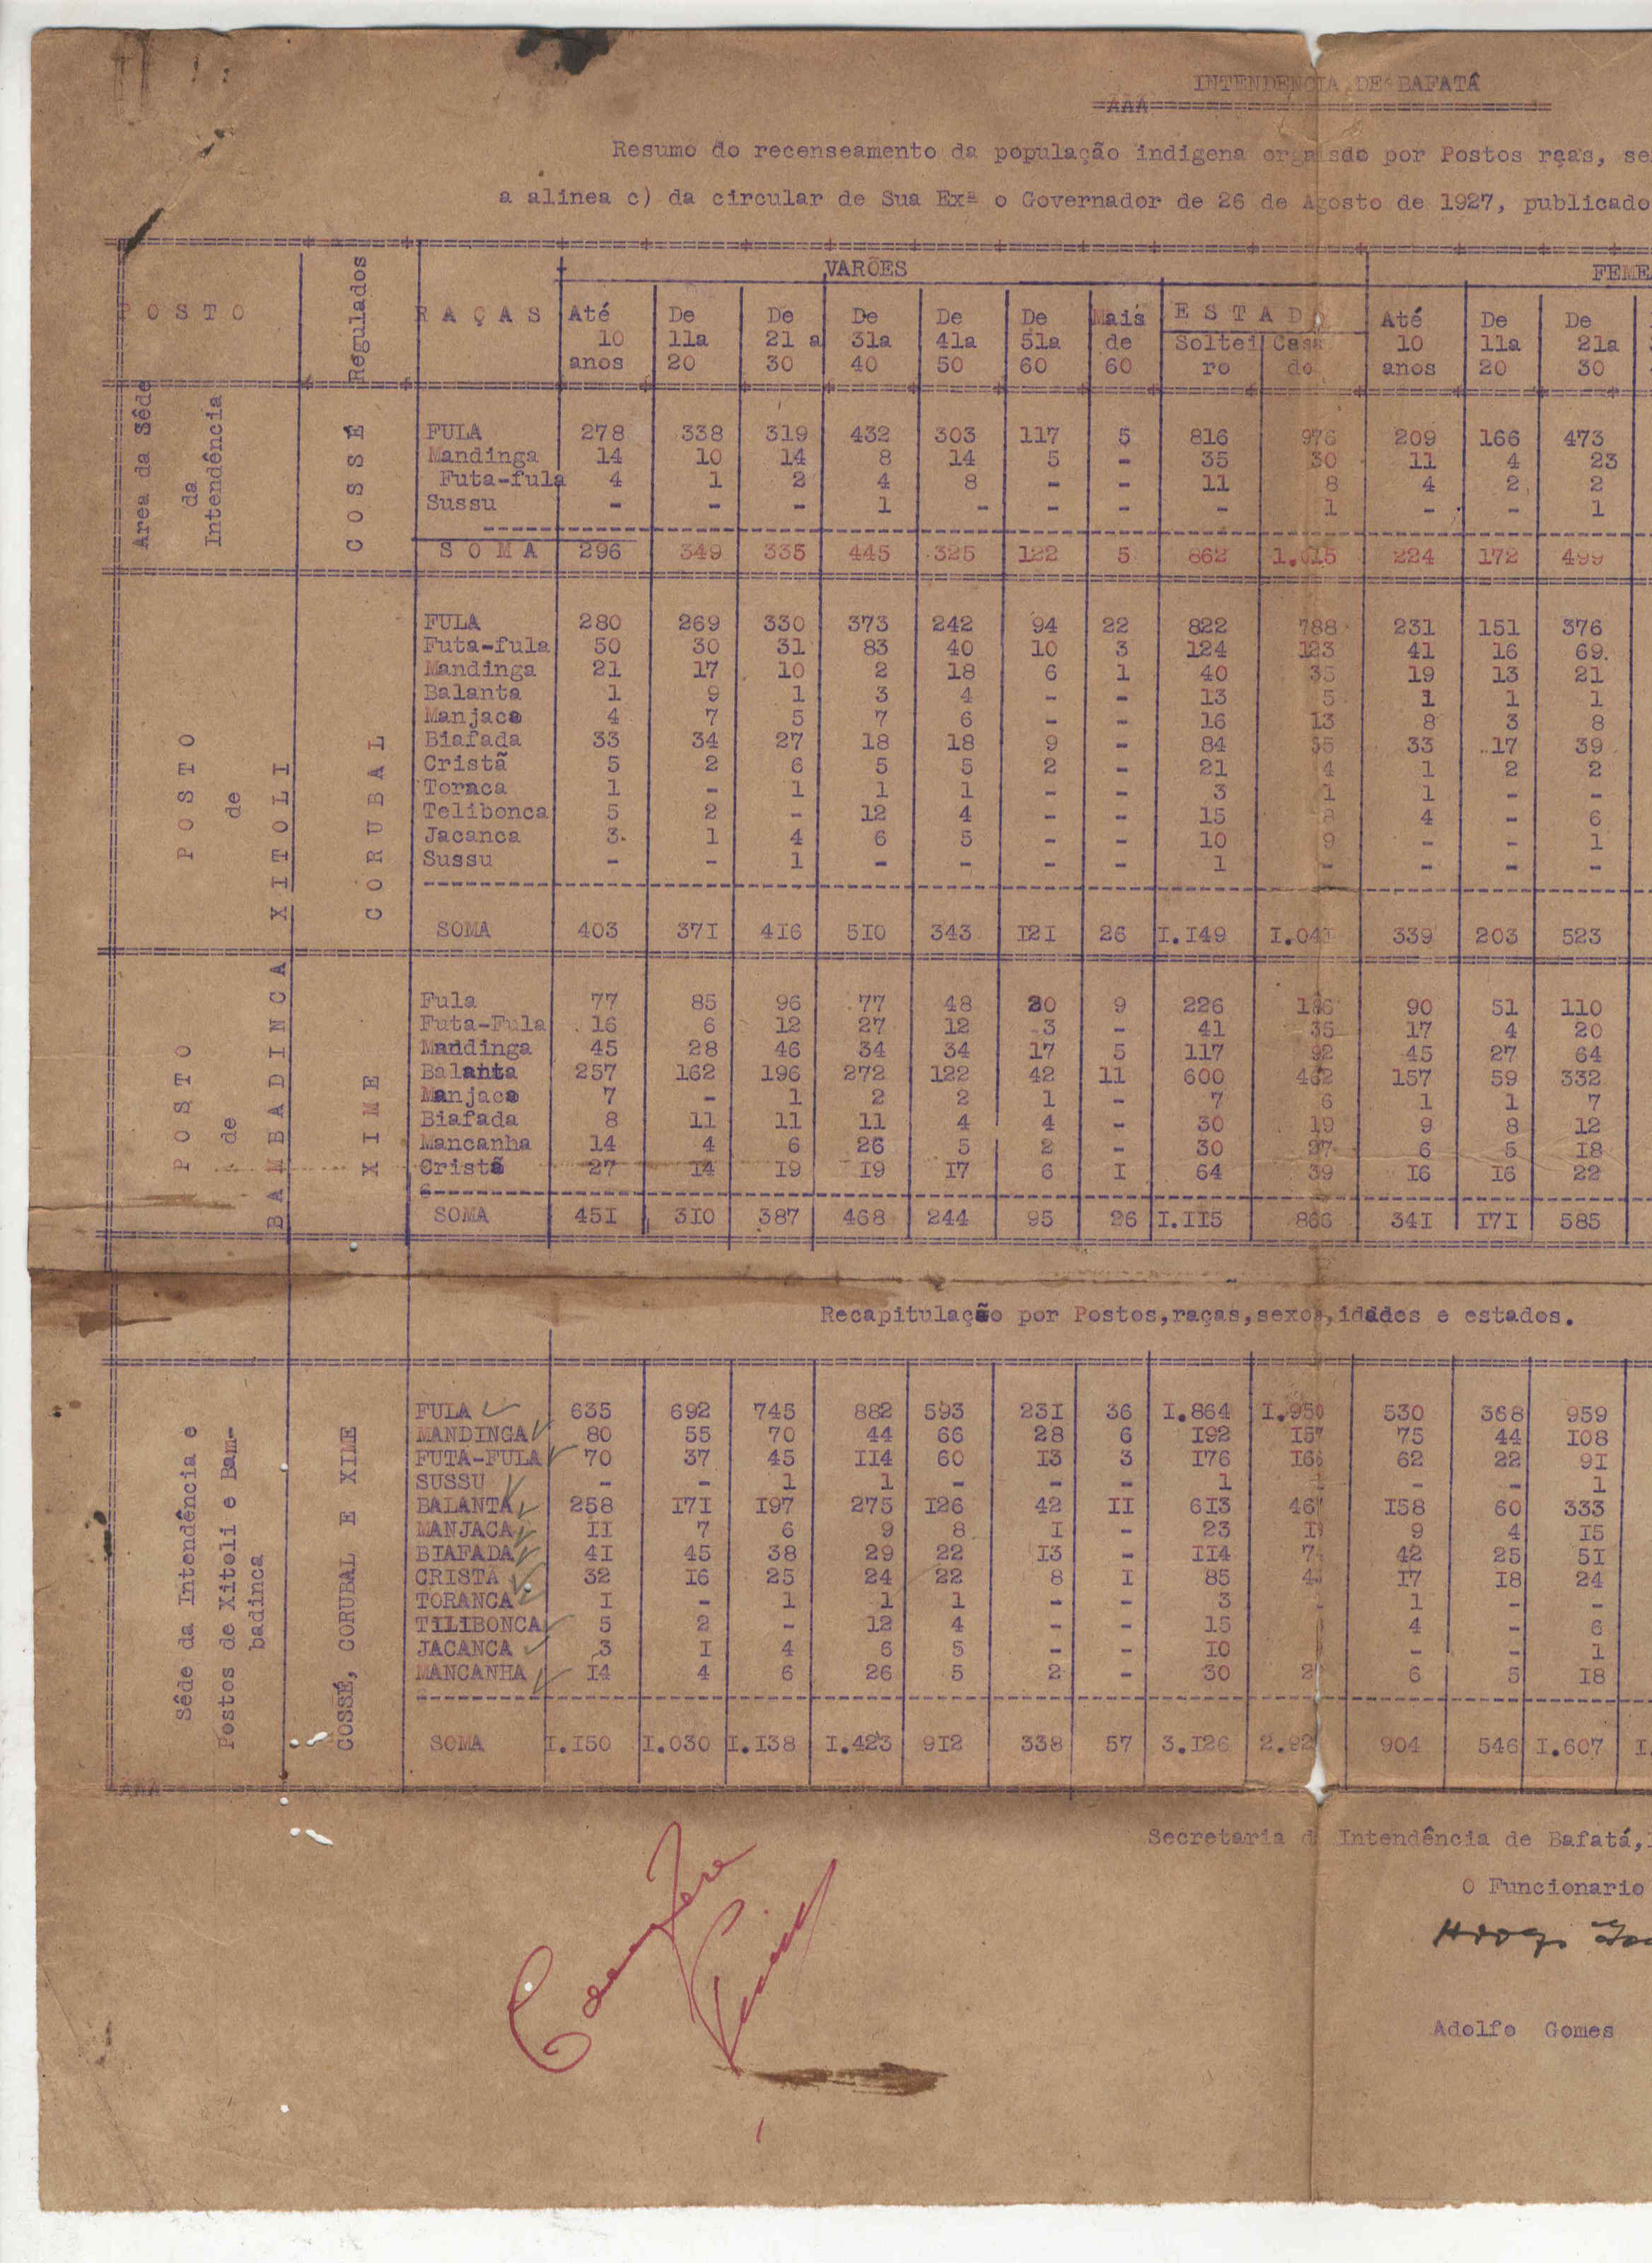 INTENDENCIA DE BAFATÁ
=AAA=
Resumo do recenseamento da população indigena por Postos raças,
a alinea c) da circular de Sua Exª o Governador de 26 de Agosto de 1927, publicado
VARÕES FEME
POSTO Regulados RAÇAS Até 10 anos De 11a 20 De 21 a 30 De 31a 40 De 41a 50 De 51a 60 Mais de 60 ESTADO Solteiro Casado Até 10 anos De 11a 20 De 21a 30
Area da Sêde da Intendência
COSSÉ
FULA 278 338 319 432 303 117 5 816 976 209 166 473
Mandinga 14 10 14 8 14 5 - 35 30 11 4 23
Futa-fula 4 1 2 4 8 - - 11 8 4 2 2
Sussu - - - 1 - - - - 1 - - 1
SOMA 296 349 335 445 325 122 5 862 1.015 224 172 499
POSTO de XITOLI
CORUBAL
FULA 280 269 330 373 242 94 22 822 788 231 151 376
Futa-fula 50 30 31 83 40 10 3 124 123 41 16 69
Mandinga 21 17 10 2 18 6 1 40 35 19 13 21
Balanta 1 9 1 3 4 - - 13 5 1 1 1
Manjaca 4 7 5 7 6 - - 16 13 8 3 8
Biafada 33 34 27 18 18 9 - 84 55 33 17 39
Cristã 5 2 6 5 5 2 - 21 4 1 2 2
Toranca 1 - 1 1 1 - - 3 1 1 - -
Telibonca 5 2 - 12 4 - - 15 8 4 - 6
Jacanca 3 1 4 6 5 - - 10 9 - - 1
Sussu - - 1 - - - - 1 - - - -
SOMA 403 371 416 510 343 121 26 1.149 1.041 339 203 523
POSTO de BAMBADINCA
XIME
Fula 77 85 96 77 48 20 9 226 186 90 51 110
Futa-Fula 16 6 12 27 12 3 - 41 35 17 4 20
Mandinga 45 28 46 34 34 17 5 117 92 45 27 64
Balanta 257 162 196 272 122 42 11 600 462 157 59 332
Manjaca 7 - 1 2 2 1 - 7 6 1 1 7
Biafada 8 11 11 11 4 4 - 30 19 9 8 12
Mancanha 14 4 6 26 5 2 - 30 27 6 5 18
Cristã 27 14 19 19 17 6 1 64 39 16 16 22
SOMA 451 310 387 468 244 95 26 1.115 866 341 171 585
Recapitulação por Postos,raças,sexos,idades e estados.
Sêde da Intendência e Postos de Xitoli e Bambadinca
COSSÉ, CORUBAL E XIME
FULA 635 692 745 882 593 231 36 1.864 1.950 530 368 959
MANDINGA 80 55 70 44 66 28 6 192 157 75 44 108
FUTA-FULA 70 37 45 114 60 13 3 176 166 62 22 91
SUSSU - - 1 1 - - - 1 - - 1
BALANTA 258 171 197 275 126 42 11 613 467 158 60 333
MANJACA 11 7 6 9 8 1 - 23 9 4 15
BIAFADA 41 45 38 29 22 13 - 114 42 25 51
CRISTÃ 32 16 25 24 22 8 1 85 17 18 24
TORANCA 1 - 1 1 1 - - 3 1 - -
TILIBONCA 5 2 - 12 4 - - 15 4 - 6
JACANCA 3 1 4 6 5 - - 10 - - 1
MANCANHA 14 4 6 26 5 2 - 30 6 5 18
SOMA 1.150 1.030 1.138 1.423 912 338 57 3.126 904 546 1.607
AAA
Secretaria d Intendência de Bafatá,
O Funcionario
Confere
Adolfo Gomes